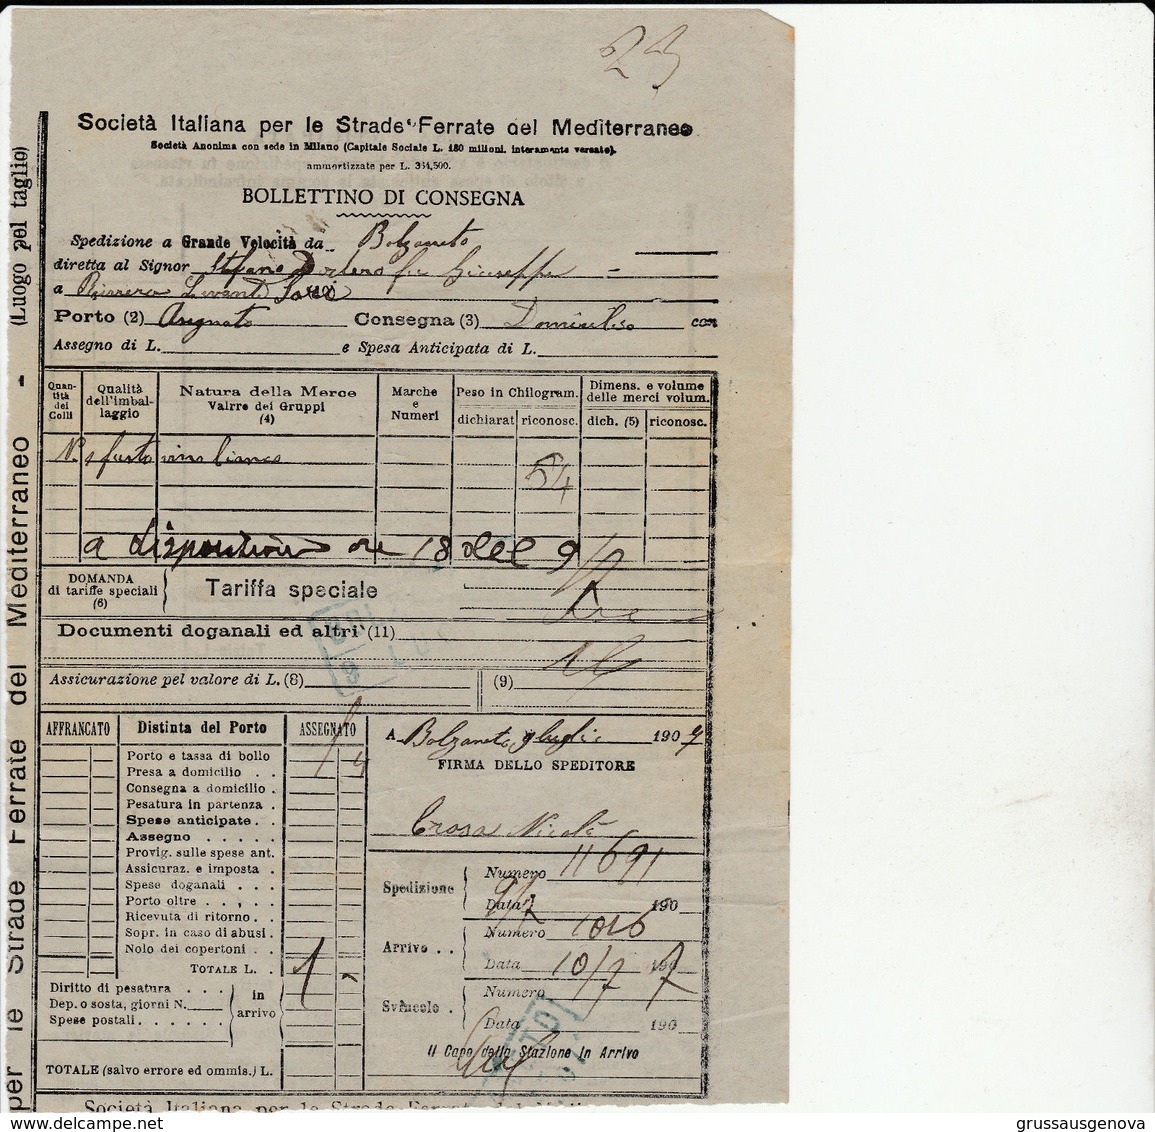 23
Società Italiana per le Strade Ferrate del Mediterraneo
Società Anonima con sede in Milano (Capitale Sociale L. 180 milioni. interamente versato).
ammortizzate per L. 354,500.
BOLLETTINO DI CONSEGNA
Spedizione a Grande Velocità da Bolzaneto
diretta al Signor Stefano fu Giuseppe
a Riviera Levante
Porto (2) Assegnato Consegna (3) Domicilio con
Assegno di L. e Spesa Anticipata di L.
Quantità dei Colli
Qualità dell'imballaggio
Natura della Merce
Valrre dei Gruppi
(4)
Marche e Numeri
Peso in Chilogram.
dichiarat riconosc.
Dimens. e volume delle merci volum.
dich. (5) riconosc.
N. 1 fusto vino bianco 54
a disposizione ore 18 del 9/7
DOMANDA di tariffe speciali (6) Tariffa speciale
Documenti doganali ed altri (11)
Assicurazione pel valore di L. (8) (9)
AFFRANCATO Distinta del Porto ASSEGNATO
Porto e tassa di bollo
Presa a domicilio . .
Consegna a domicilio .
Pesatura in partenza .
Spese anticipate . .
Assegno . . . . .
Provig. sulle spese ant.
Assicuraz. e imposta .
Spese doganali . . .
Porto oltre . . , .
Ricevuta di ritorno . .
Sopr. in caso di abusi .
Nolo dei copertoni . .
TOTALE L. . 1 -
Diritto di pesatura . . .
Dep. o sosta, giorni N.
Spese postali . . . . . .
in arrivo
TOTALE (salvo errore ed ommis.) L.
A Bolzaneto 9 luglio 1907
FIRMA DELLO SPEDITORE
Crosa Nicolò
Spedizione Numero 11691
Data 9/7 190
Arrivo . . Numero 1016
Data 10/7 1907
Svincolo . Numero
Data 190
Il Capo della Stazione in Arrivo
Società Italiana per le Strade Ferrate del
per le Strade Ferrate del Mediterraneo - (Luogo pel taglio)
grussausgenova